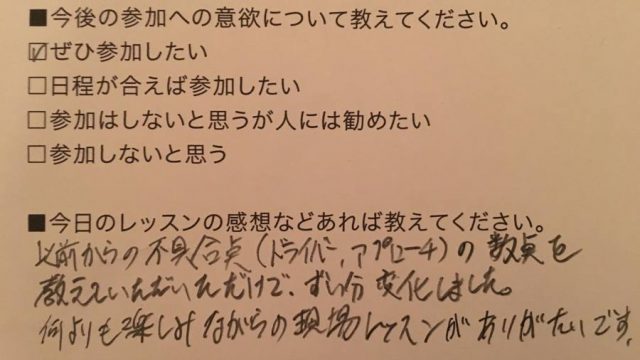 ■今後の参加への意欲について教えてください。
☑ぜひ参加したい
□日程が合えば参加したい
□参加はしないと思うが人には勧めたい
□参加しないと思う
■今日のレッスンの感想などあれば教えてください。
以前からの不具合点(ドライバー,アプローチ)の数点を
教えていただいただけで、ずい分変化しました。
何よりも楽しみながらの現場レッスンがありがたいです。